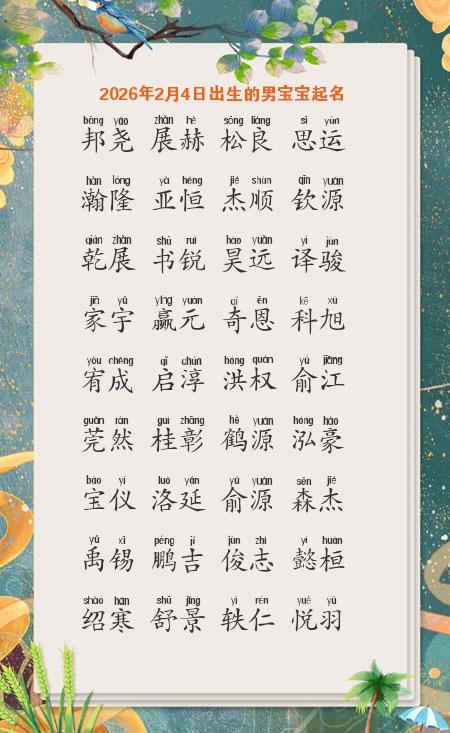 2026年2月4日出生的男宝宝起名
bāng yáo zhǎn hè sōng liáng sī yùn
邦尧 展赫 松良 思运
hàn lóng yà héng jié shùn qīn yuán
瀚隆 亚恒 杰顺 钦源
qián zhǎn shū ruì hào yuǎn yì jùn
乾展 书锐 昊远 译骏
jiā yǔ yíng yuán qí ēn kē xù
家宇 赢元 奇恩 科旭
yòu chéng qǐ chún hóng quán yú jiāng
宥成 启淳 洪权 俞江
guǎn rán guì zhāng hè yuán hóng háo
莞然 桂彰 鹤源 泓豪
bǎo yí luò yán yú yuán sēn jié
宝仪 洛延 俞源 森杰
yǔ xī péng jí jùn zhì yì huán
禹锡 鹏吉 俊志 懿桓
shào hán shū jǐng yì rén yuè yǔ
绍寒 舒景 轶仁 悦羽